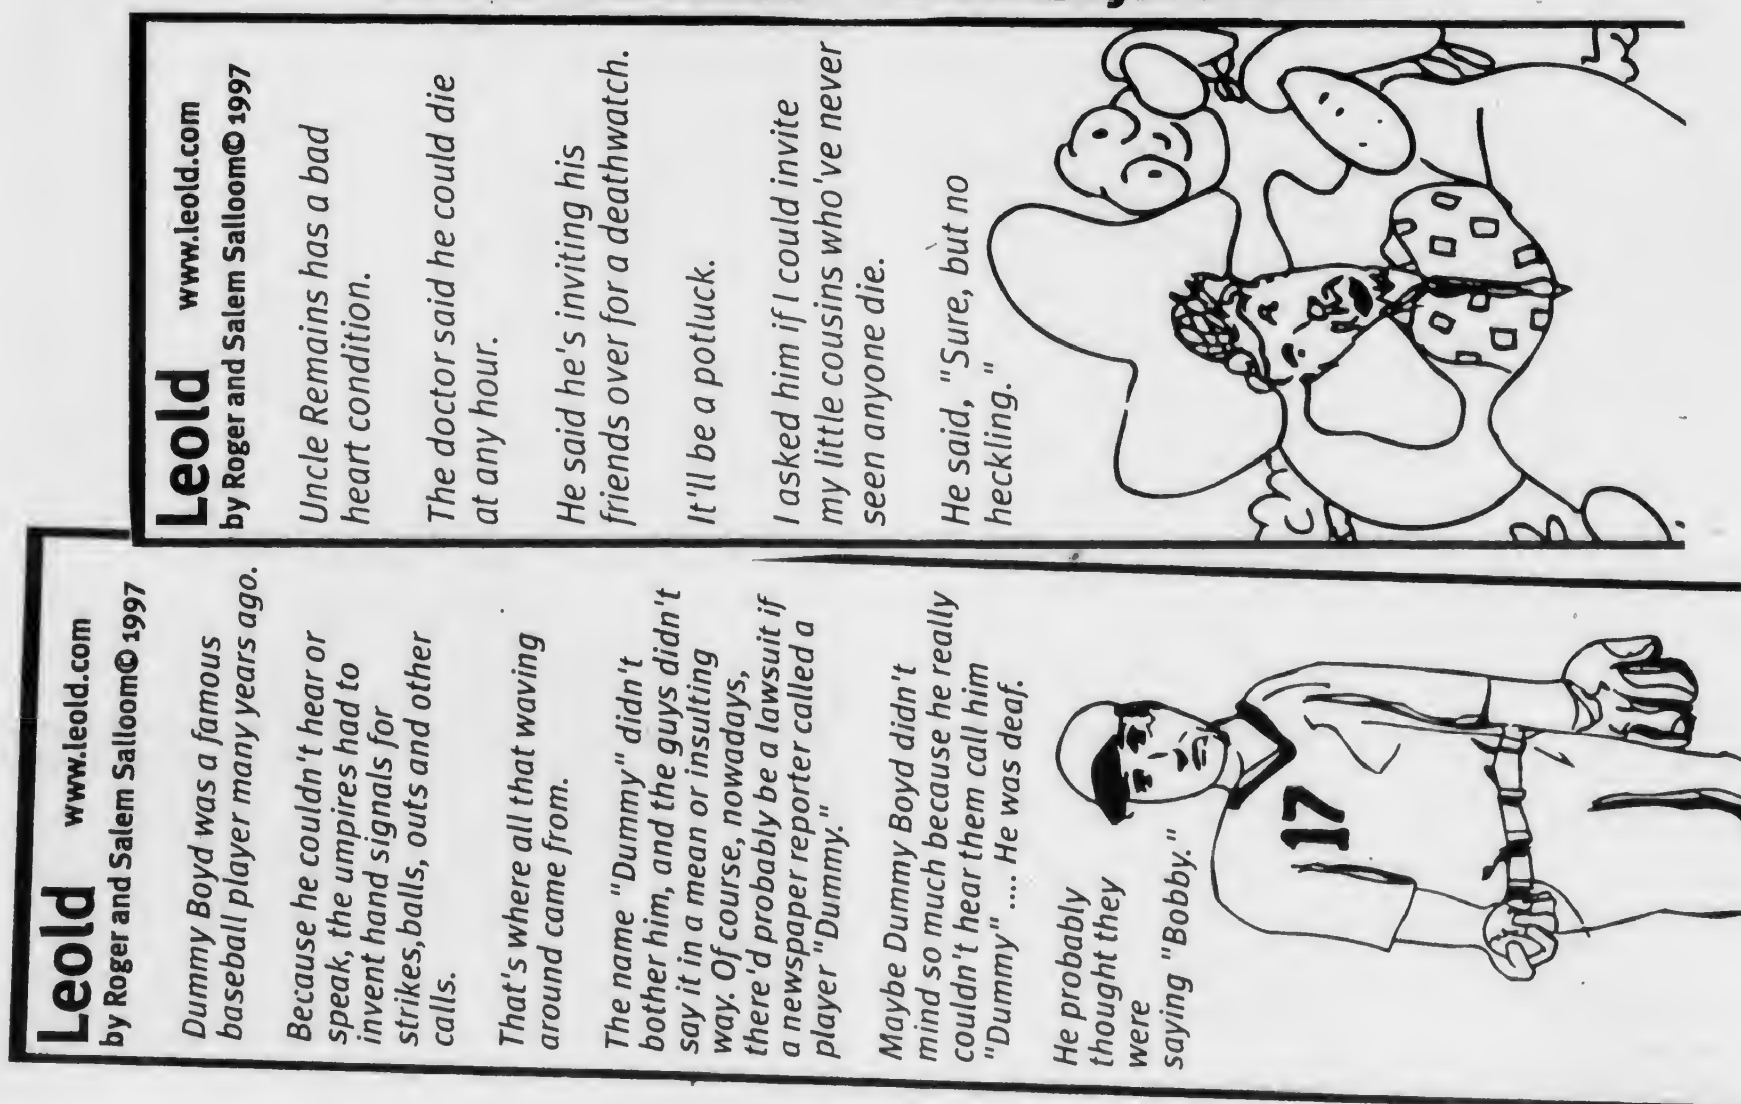 Leold www.leold.com
by Roger and Salem Salloom© 1997
Dummy Boyd was a famous
baseball player many years ago.
Because he couldn't hear or
speak, the umpires had to
invent hand signals for
strikes,balls, outs and other
calls.
That's where all that waving
around came from.
The name "Dummy" didn't
bother him, and the guys didn't
say it in a mean or insulting
way. Of course, nowadays,
there'd probably be a lawsuit if
a newspaper reporter called a
player "Dummy."
Maybe Dummy Boyd didn't
mind so much because he really
couldn't hear them call him
"Dummy" .... He was deaf.
He probably
thought they
were
saying "Bobby."
17
Leold www.leold.com
by Roger and Salem Salloom© 1997
Uncle Remains has a bad
heart condition.
The doctor said he could die
at any hour.
He said he's inviting his
friends over for a deathwatch.
It'll be a potluck.
I asked him if I could invite
my little cousins who've never
seen anyone die.
He said, "Sure, but no
heckling."